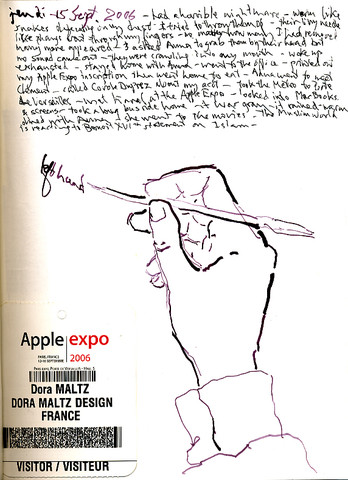 jeudi - 15 Sept. 2006 - had a horrible nightmare - worms like
snakes depending on my chest - I tried to throw them off - their tiny heads
like thorns through my fingers - no matter how many I had removed
many more appeared - I asked Anna to grab them by their head but
no sound came out - they were crawling into my mouth - woke up
exhausted - stayed home with Anna - went to the office - printed out
my Apple Expo inscription then went home to eat - Anna went to meet
Clément - called Carole - took the Métro to Porte
de Versailles - met at the Apple Expo - looked into MacBooks
& screens - took a long bus ride home - it was gray - it rained - warm
with Anna - she went to the movies - The Muslim world
is reacting to Benoit XVI's statement on Islam -
left hand
Apple expo
PARIS, FRANCE
2006
Dora MALTZ
DORA MALTZ DESIGN
FRANCE
VISITOR / VISITEUR